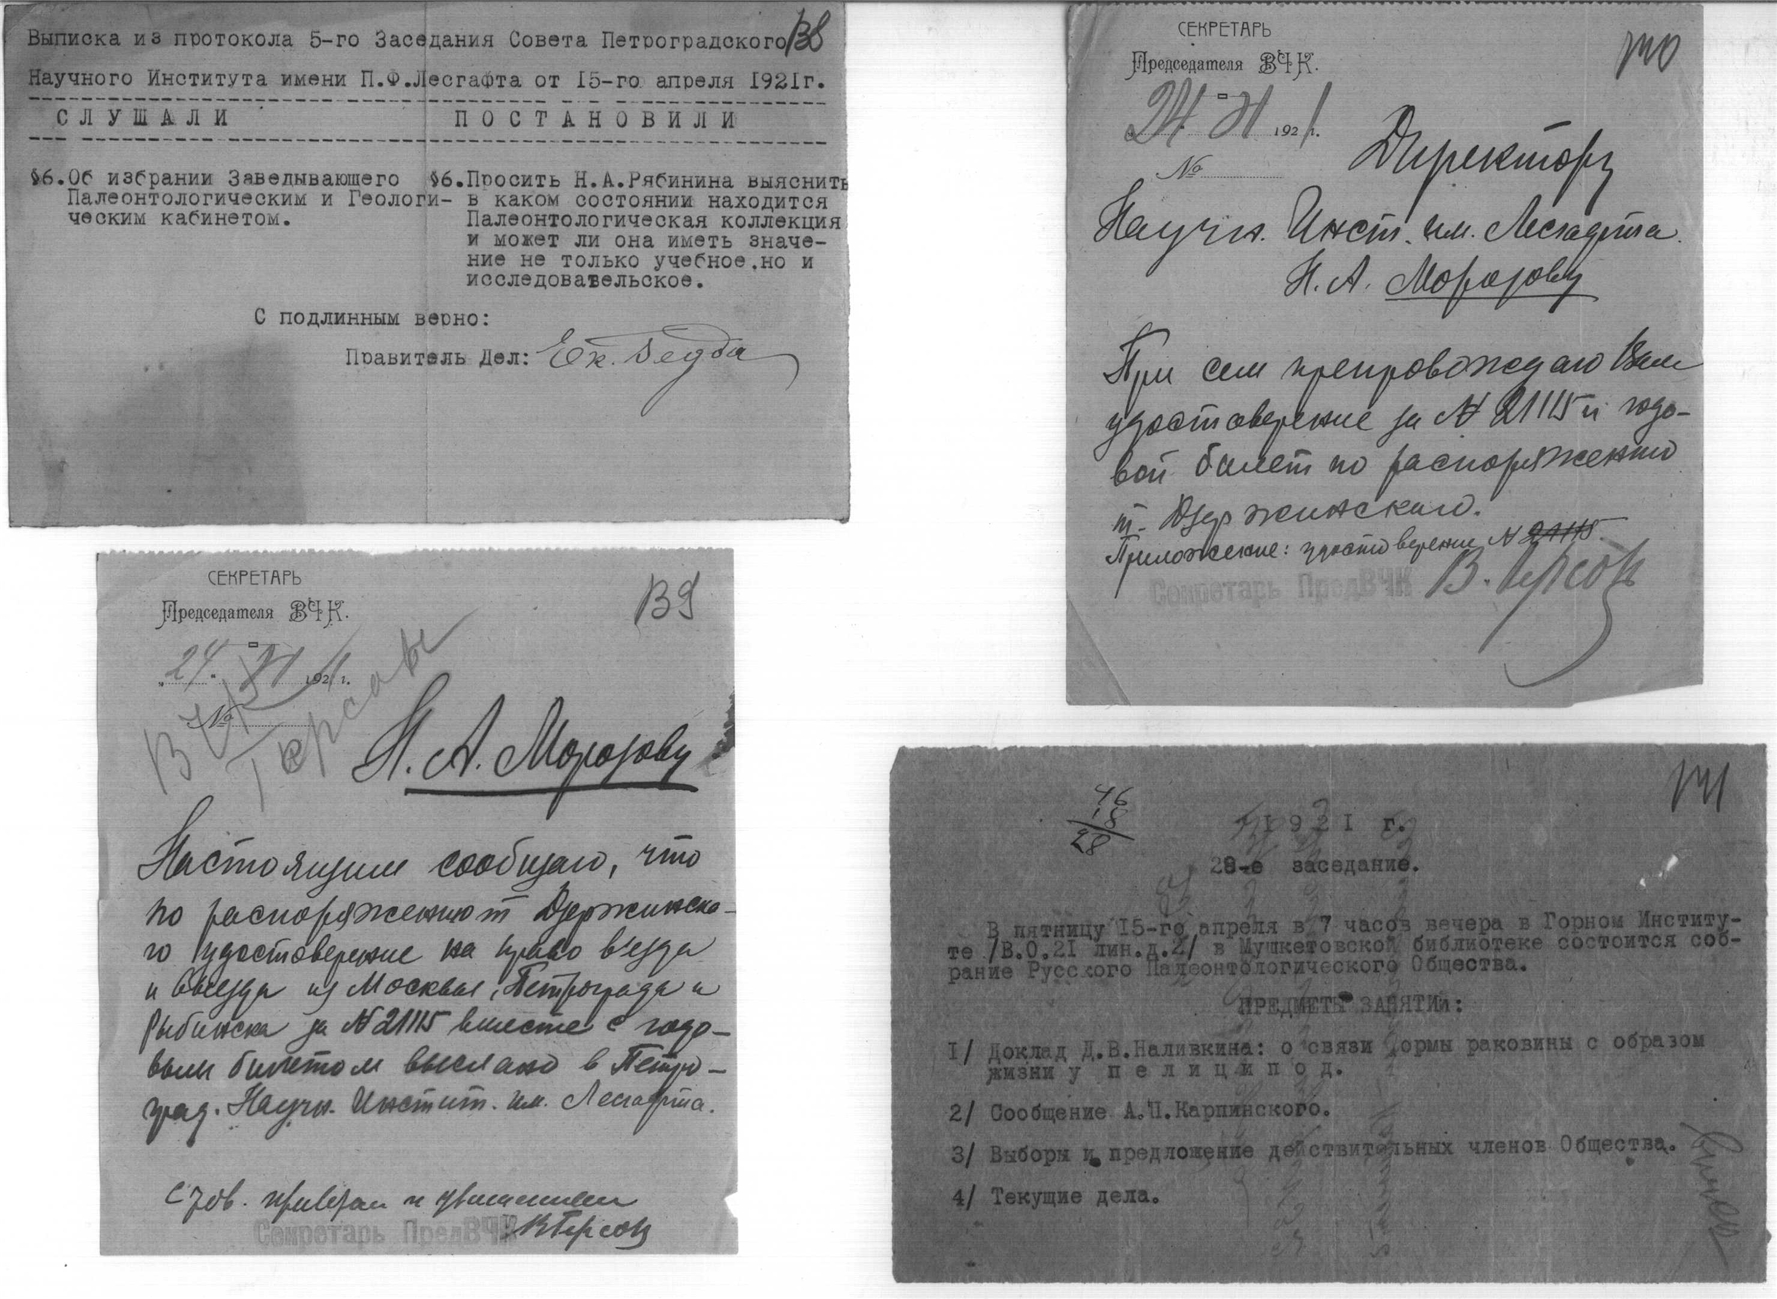 Выписка из протокола 5-го Заседания Совета Петроградского
138
Научного Института имени П.Ф.Лесгафта от 15-го апреля 1921г.
СЛУШАЛИ ПОСТАНОВИЛИ
§6.Об избрании Заведывающего
Палеонтологическим и Геологи-
ческим кабинетом.
§6.Просить Н.А.Рябинина выяснить
в каком состоянии находится
Палеонтологическая коллекция
и может ли она иметь значе-
ние не только учебное,но и
исследовательское.
С подлинным верно:
Правитель Дел: Ек.
СЕКРЕТАРЬ
Председателя ВЧК.
139
24 1921г.
№
Н. А. Морозову
Настоящим сообщаю, что
по распоряжению т Дзержинско-
го удостоверение на право в'езда
и выезда из Москвы, Петрограда и
Рыбинска за № 21115 вместе с годо-
вым билетом выслано в Петро-
град. Научн. Инстит. им. Лесгафта.
с тов. приветом и уважением
Секретарь ПредВЧК
СЕКРЕТАРЬ
Председателя ВЧК.
140
24 1921г.
№
Директору
Научн. Инст. им. Лесгафта.
Н. А. Морозову
При сем препровождаю Вам
удостоверение за № 21115 и годо-
вой билет по распоряжению
т. Дзержинского.
Приложение: удостоверение № 21115.
Секретарь ПредВЧК
141
46
18
28
1921 г.
28-е заседание.
В пятницу 15-го апреля в 7 часов вечера в Горном Институ-
те /В.О.21 лин.д.2/ в Мушкетовской библиотеке состоится соб-
рание Русского Палеонтологического Общества.
ПРЕДМЕТЫ ЗАНЯТИЙ:
1/ Доклад Д.В.Наливкина: о связи формы раковины с образом
жизни у пелиципод.
2/ Сообщение А.П.Карпинского.
3/ Выборы и предложение действительных членов Общества.
4/ Текущие дела.